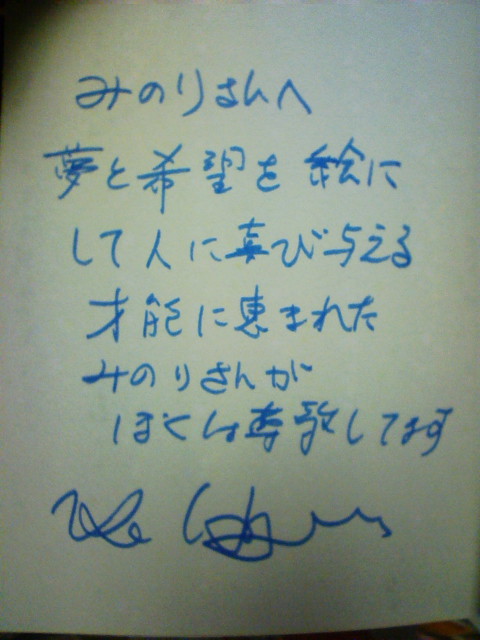 みのりさんへ
夢と希望を絵に
して人に喜び与える
才能に恵まれた
みのりさんが
ぼくは尊敬してます